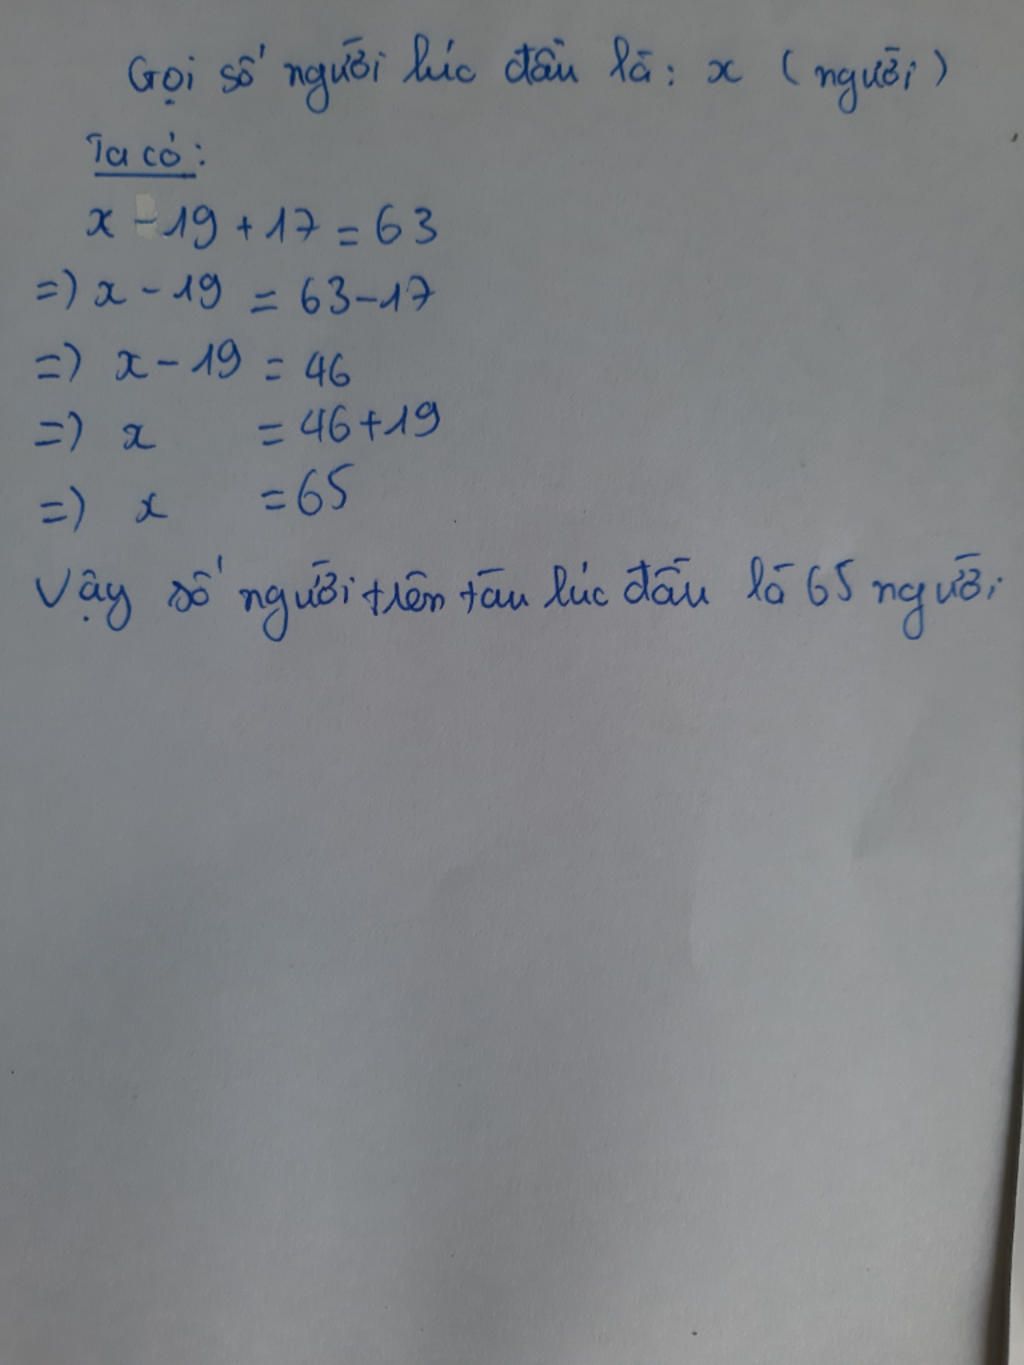 Gọi số người lúc đầu là: x (người)
Ta có:
x - 19 + 17 = 63
=) x - 19 = 63 - 17
=) x - 19 = 46
=) x = 46 + 19
=) x = 65
Vậy số người trên tàu lúc đầu là 65 người